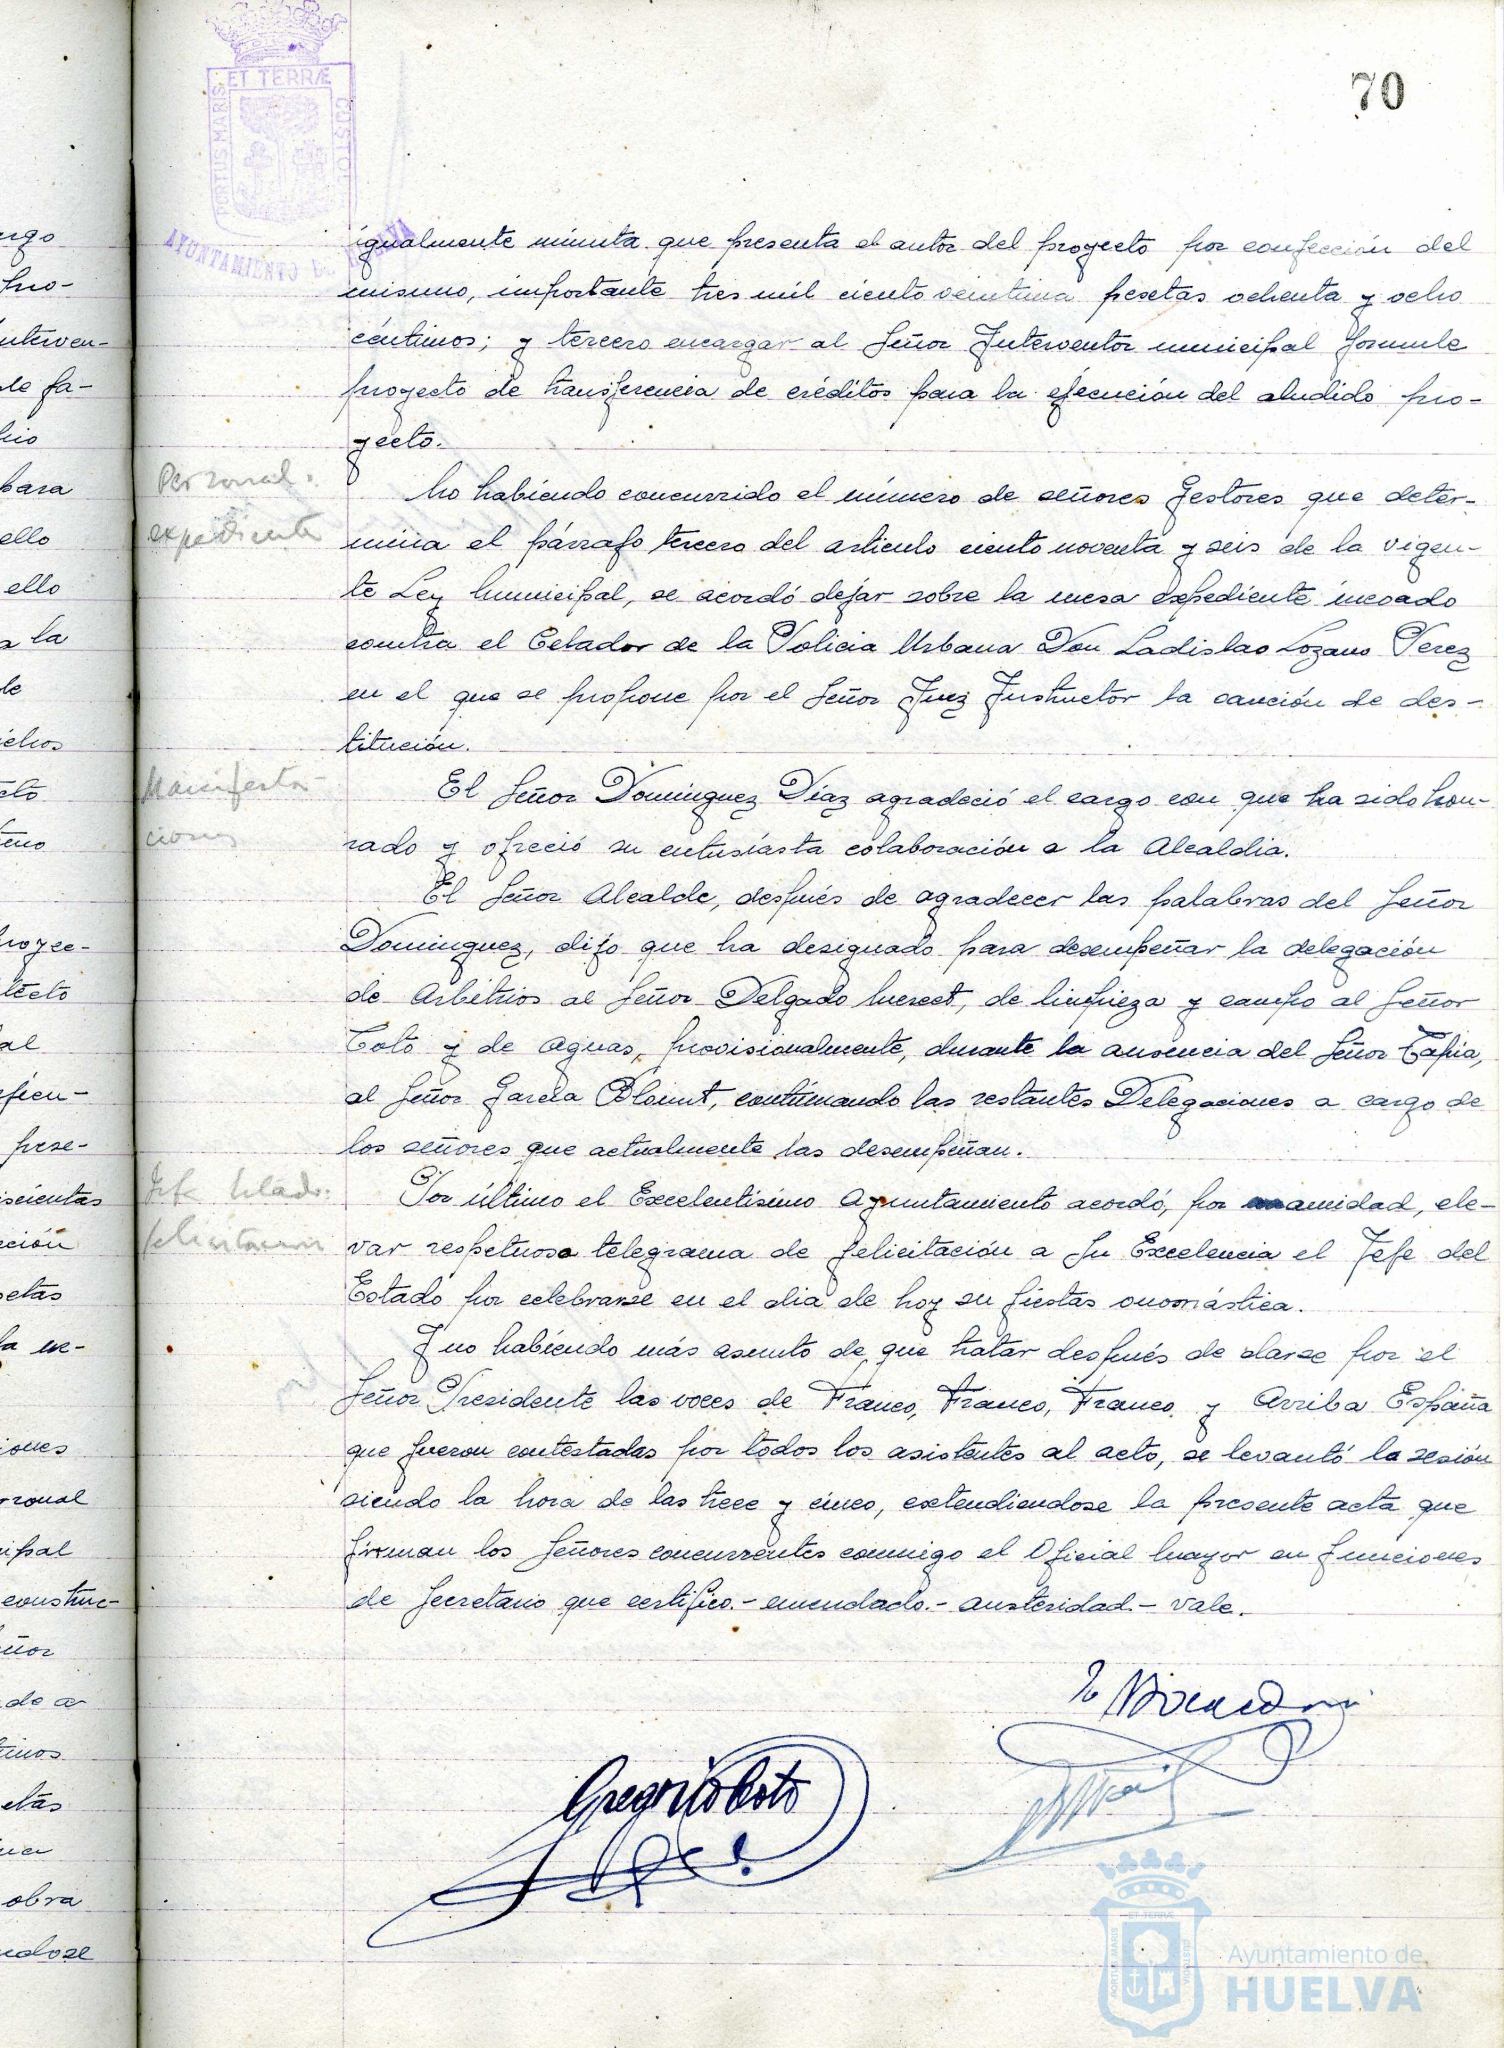 70
ET TERRÆ
PORTUS MARIS
CUSTOD
AYUNTAMIENTO DE HUELVA
igualmente minuta que presenta el autor del proyecto por confección del
mismo, importante tres mil ciento veintiuna pesetas ochenta y ocho
céntimos; y tercero encargar al Señor Interventor municipal formule
proyecto de transferencia de créditos para la ejecución del aludido pro-
yecto.
Personal.
expediente
No habiendo concurrido el número de señores Gestores que deter-
mina el párrafo tercero del articulo ciento noventa y seis de la vigen-
te Ley Municipal, se acordó dejar sobre la mesa expediente incoado
contra el Celador de la Policia Urbana Don Ladislao Lozano Perez
en el que se propone por el Señor Juez Instructor la canción de des-
titución.
Manifesta-
ciones
El Señor Dominguez Díaz agradeció el cargo con que ha sido hon-
rado y ofreció su entusiasta colaboración a la Alcaldia.
El Señor Alcalde, después de agradecer las palabras del Señor
Dominguez, dijo que ha designado para desempeñar la delegación
de Arbitrios al Señor Delgado, de limpieza y campo al Señor
Coto y de Aguas, provisionalmente, durante la ausencia del Señor Tapia,
al Señor García Blount, continuando las restantes Delegaciones a cargo de
los señores que actualmente las desempeñan.
Jefe Estado.
felicitacion
Por último el Excelentisimo Ayuntamiento acordó, por unanimidad, ele-
var respetuoso telegrama de felicitación a Su Excelencia el Jefe del
Estado por celebrarse en el dia de hoy su fiestas onomástica.
Y no habiendo más asunto de que tratar después de darse por el
Señor Presidente las voces de Franco, Franco, Franco y Arriba España
que fueron contestadas por todos los asistentes al acto, se levantó la sesión
siendo la hora de las trece y cinco, extendiendose la presente acta que
firman los Señores concurrentes conmigo el Oficial Mayor en funciones
de Secretario que certifico.- enmendado.- austeridad.- vale.
Gregorio Coto
ET TERRÆ
PORTUS MARIS
CUSTODIA
Ayuntamiento de
HUELVA